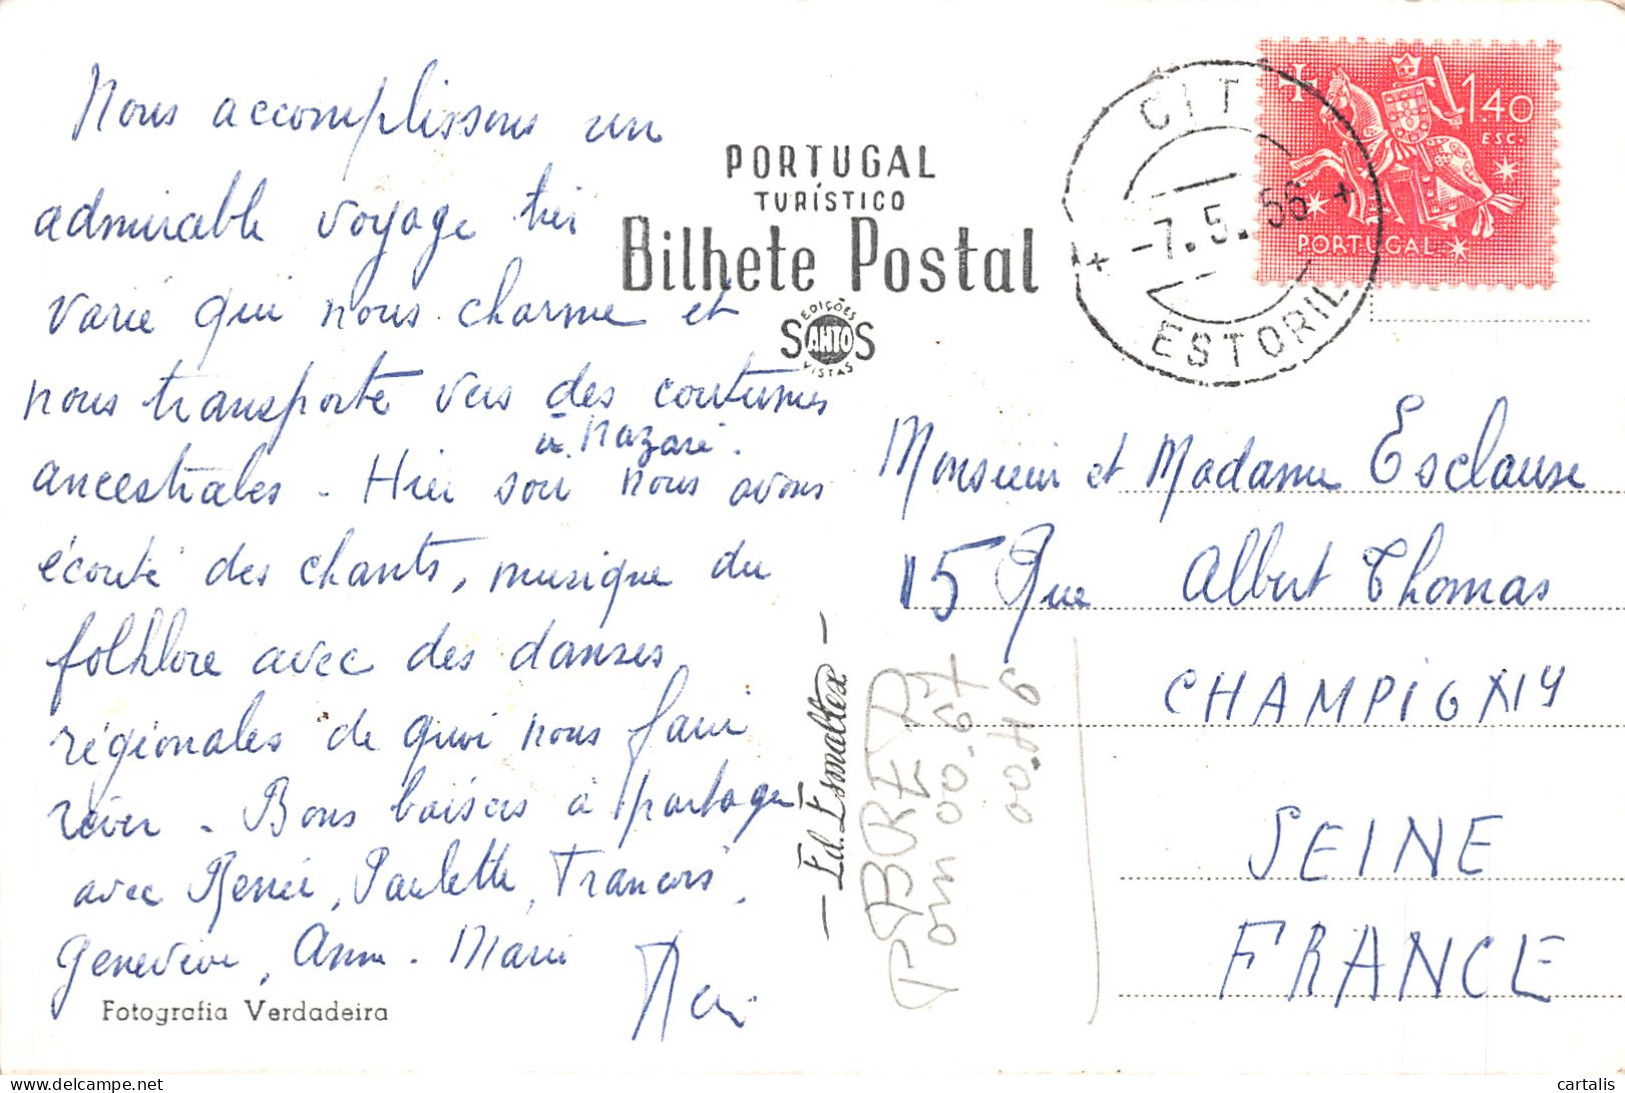 Nous accomplissons un
admirable voyage très
varié qui nous charme et
nous transporte vers des coutumes
à Nazaré.
ancestrales - Hier soir nous avons
écouté des chants, musique du
folklore avec des danses
régionales de quoi nous faire
rêver - Bons baisers à partager
avec Renée, Paulette, François,
Geneviève, Anne-Marie
Fotografia Verdadeira
PORTUGAL
TURÍSTICO
Bilhete Postal
EDIÇÕES
SANTOS
VISTAS
Ed. Esmaltex
CIT
-7.5.56
ESTORIL
1.40
ESC.
PORTUGAL
Monsieur et Madame Esclause
15 Rue Albert Thomas
CHAMPIGNY
SEINE
FRANCE
cartalis